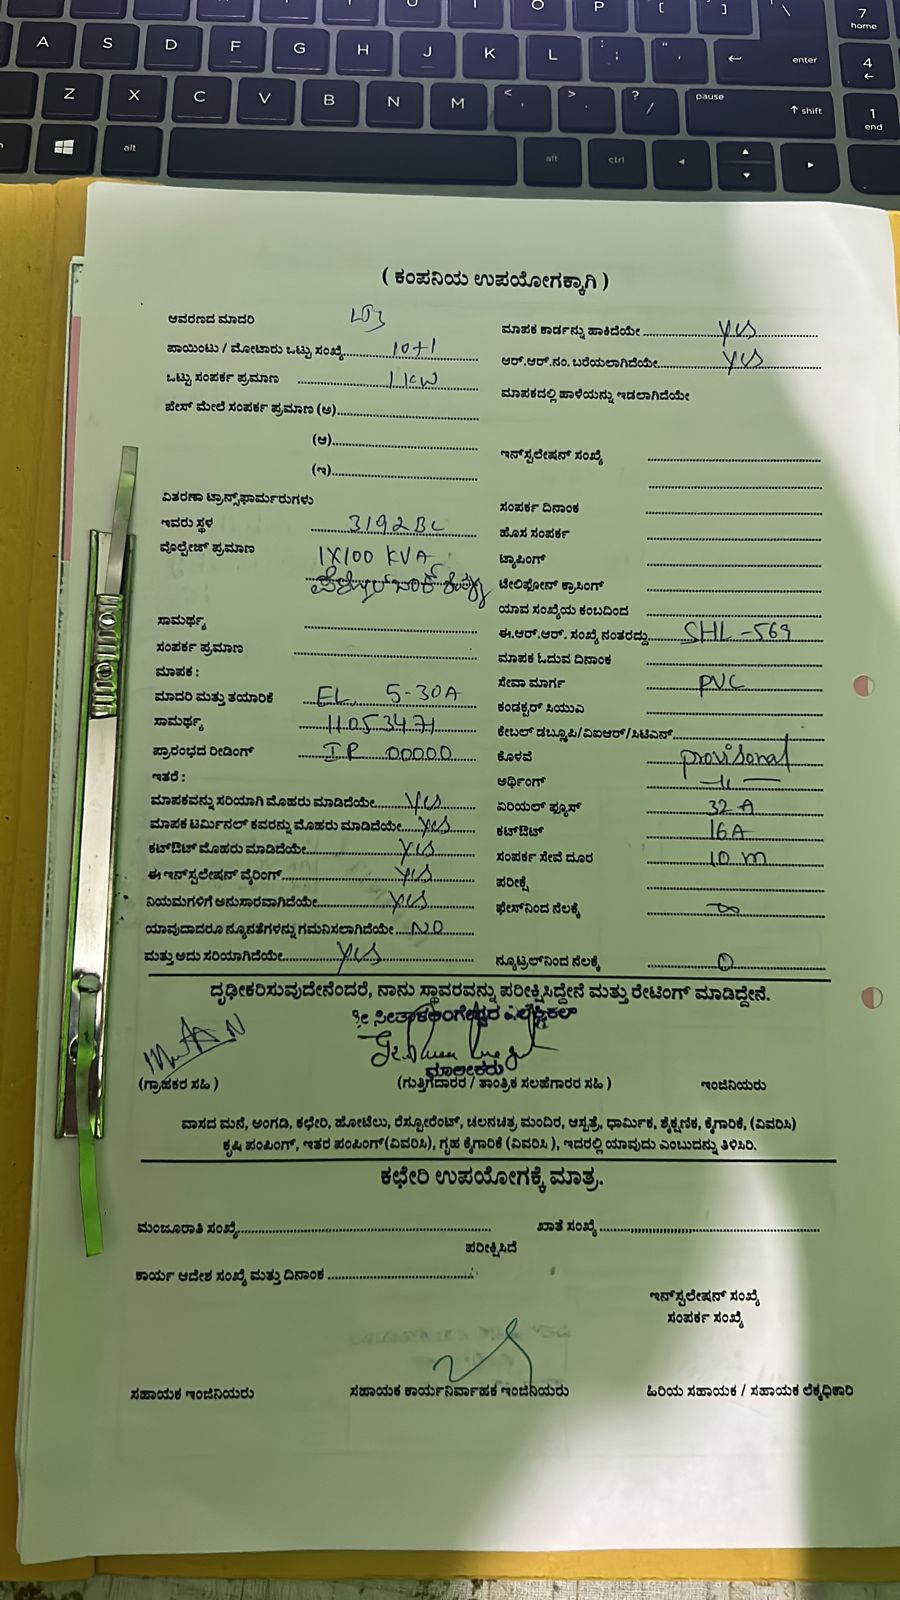 U I O P [ ] \ 7 home
A S D F G H J K L : ; " ' enter 4
Z X C V B N M < , > . ? / pause shift 1 end
alt alt ctrl
( ಕಂಪನಿಯ ಉಪಯೋಗಕ್ಕಾಗಿ )
ಆವರಣದ ಮಾದರಿ
ಮಾಪಕ ಕಾರ್ಡನ್ನು ಹಾಕಿದೆಯೇ yes
ಪಾಯಿಂಟು / ಮೋಟಾರು ಒಟ್ಟು ಸಂಖ್ಯೆ 10+1
ಆರ್.ಆರ್.ನಂ. ಬರೆಯಲಾಗಿದೆಯೇ yes
ಒಟ್ಟು ಸಂಪರ್ಕ ಪ್ರಮಾಣ 1 KW
ಮಾಪಕದಲ್ಲಿ ಹಾಳೆಯನ್ನು ಇಡಲಾಗಿದೆಯೇ
ಪೇಸ್ ಮೇಲೆ ಸಂಪರ್ಕ ಪ್ರಮಾಣ (ಅ)
(ಆ)
(ಇ)
ಇನ್‌ಸ್ಟಲೇಷನ್ ಸಂಖ್ಯೆ
ವಿತರಣಾ ಟ್ರಾನ್ಸ್‌ಫಾರ್ಮರುಗಳು
ಸಂಪರ್ಕ ದಿನಾಂಕ
ಇವರು ಸ್ಥಳ 3192BC
ಹೊಸ ಸಂಪರ್ಕ
ವೊಲ್ಟೇಜ್ ಪ್ರಮಾಣ 1X100 KVA
ಟ್ಯಾಪಿಂಗ್
ಟೆಲಿಫೋನ್ ಕ್ರಾಸಿಂಗ್
ಯಾವ ಸಂಖ್ಯೆಯ ಕಂಬದಿಂದ
ಸಾಮರ್ಥ್ಯ
ಈ.ಆರ್.ಆರ್. ಸಂಖ್ಯೆ ನಂತರದ್ದು SHL-569
ಸಂಪರ್ಕ ಪ್ರಮಾಣ
ಮಾಪಕ ಓದುವ ದಿನಾಂಕ
ಮಾಪಕ :
ಸೇವಾ ಮಾರ್ಗ PVC
ಮಾದರಿ ಮತ್ತು ತಯಾರಿಕೆ EL 5-30A
ಕಂಡಕ್ಟರ್ ಸಿಯುಎ
ಸಾಮರ್ಥ್ಯ 11053471
ಕೇಬಲ್ ಡಬ್ಲೂಪಿ/ವಿಐಆರ್/ಸಿಟಿಎನ್
ಪ್ರಾರಂಭದ ರೀಡಿಂಗ್ IR 00000
ಕೊಳವೆ provisonal
ಇತರೆ :
ಅರ್ಥಿಂಗ್ —"—
ಮಾಪಕವನ್ನು ಸರಿಯಾಗಿ ಮೊಹರು ಮಾಡಿದೆಯೇ yes
ಏರಿಯಲ್ ಫ್ಯೂಸ್ 32 A
ಮಾಪಕ ಟರ್ಮಿನಲ್ ಕವರನ್ನು ಮೊಹರು ಮಾಡಿದೆಯೇ yes
ಕಟ್‌ಔಟ್ 16A
ಕಟ್‌ಔಟ್ ಮೊಹರು ಮಾಡಿದೆಯೇ yes
ಸಂಪರ್ಕ ಸೇವೆ ದೂರ 10 m
ಈ ಇನ್‌ಸ್ಟಲೇಷನ್ ವೈರಿಂಗ್ yes
ಪರೀಕ್ಷೆ
ನಿಯಮಗಳಿಗೆ ಅನುಸಾರವಾಗಿದೆಯೇ yes
ಫೇಸ್‌ನಿಂದ ನೆಲಕ್ಕೆ ∞
ಯಾವುದಾದರೂ ನ್ಯೂನತೆಗಳನ್ನು ಗಮನಿಸಲಾಗಿದೆಯೇ NO
ಮತ್ತು ಅದು ಸರಿಯಾಗಿದೆಯೇ yes
ನ್ಯೂಟ್ರಲ್‌ನಿಂದ ನೆಲಕ್ಕೆ 0
ದೃಢೀಕರಿಸುವುದೇನೆಂದರೆ, ನಾನು ಸ್ಥಾವರವನ್ನು ಪರೀಕ್ಷಿಸಿದ್ದೇನೆ ಮತ್ತು ರೇಟಿಂಗ್ ಮಾಡಿದ್ದೇನೆ.
ಮಾಲೀಕರು
(ಗ್ರಾಹಕರ ಸಹಿ ) (ಗುತ್ತಿಗೆದಾರರ / ತಾಂತ್ರಿಕ ಸಲಹೆಗಾರರ ಸಹಿ ) ಇಂಜಿನಿಯರು
ವಾಸದ ಮನೆ, ಅಂಗಡಿ, ಕಛೇರಿ, ಹೋಟೆಲು, ರೆಸ್ಟೋರೆಂಟ್, ಚಲನಚಿತ್ರ ಮಂದಿರ, ಆಸ್ಪತ್ರೆ, ಧಾರ್ಮಿಕ, ಶೈಕ್ಷಣಿಕ, ಕೈಗಾರಿಕೆ, (ವಿವರಿಸಿ)
ಕೃಷಿ ಪಂಪಿಂಗ್, ಇತರ ಪಂಪಿಂಗ್(ವಿವರಿಸಿ), ಗೃಹ ಕೈಗಾರಿಕೆ (ವಿವರಿಸಿ ), ಇದರಲ್ಲಿ ಯಾವುದು ಎಂಬುದನ್ನು ತಿಳಿಸಿರಿ.
ಕಛೇರಿ ಉಪಯೋಗಕ್ಕೆ ಮಾತ್ರ.
ಮಂಜೂರಾತಿ ಸಂಖ್ಯೆ ಖಾತೆ ಸಂಖ್ಯೆ
ಪರೀಕ್ಷಿಸಿದೆ
ಕಾರ್ಯ ಆದೇಶ ಸಂಖ್ಯೆ ಮತ್ತು ದಿನಾಂಕ
ಇನ್‌ಸ್ಟಲೇಷನ್ ಸಂಖ್ಯೆ
ಸಂಪರ್ಕ ಸಂಖ್ಯೆ
ಸಹಾಯಕ ಇಂಜಿನಿಯರು ಸಹಾಯಕ ಕಾರ್ಯನಿರ್ವಾಹಕ ಇಂಜಿನಿಯರು ಹಿರಿಯ ಸಹಾಯಕ / ಸಹಾಯಕ ಲೆಕ್ಕಧಿಕಾರಿ